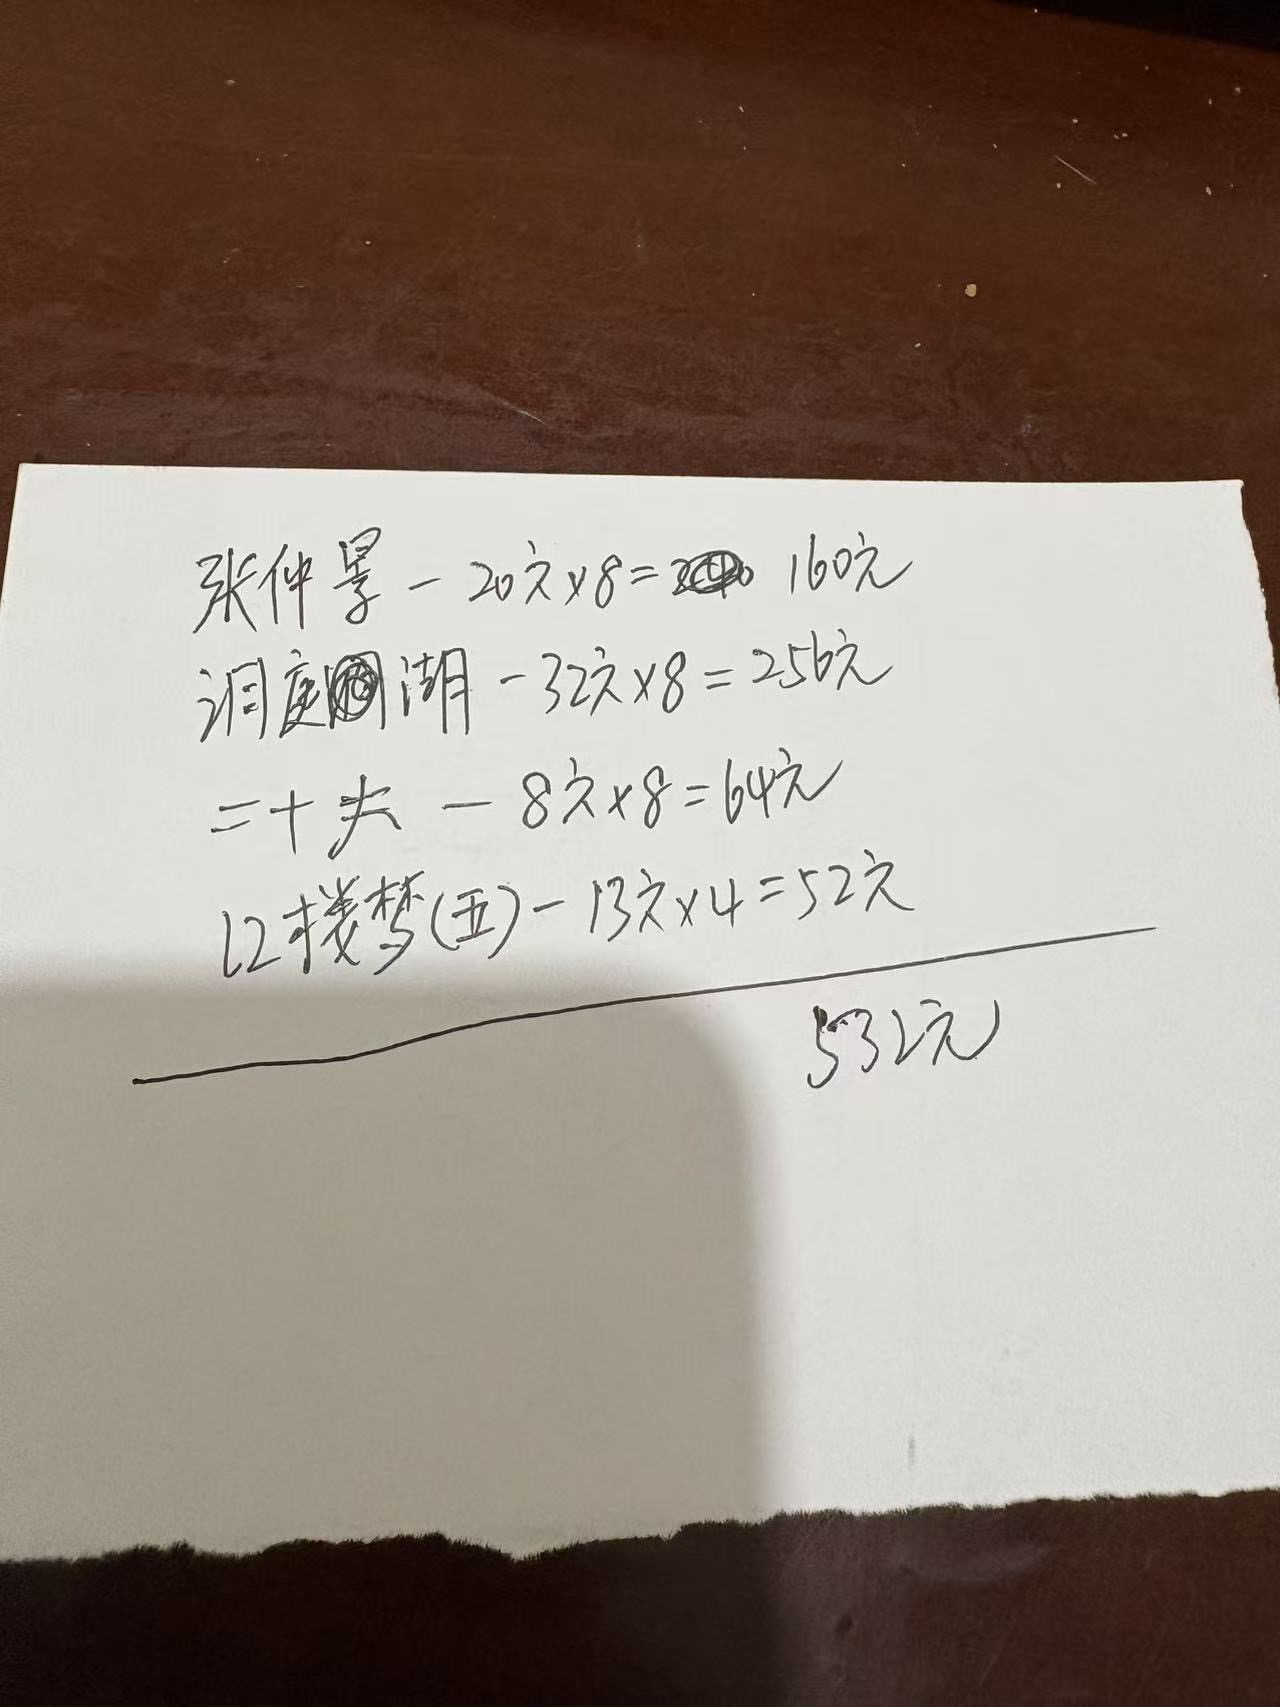 张仲景－20元×8＝160元
洞庭湖－32元×8＝256元
二十大－8元×8＝64元
红楼梦(五)－13元×4＝52元
532元